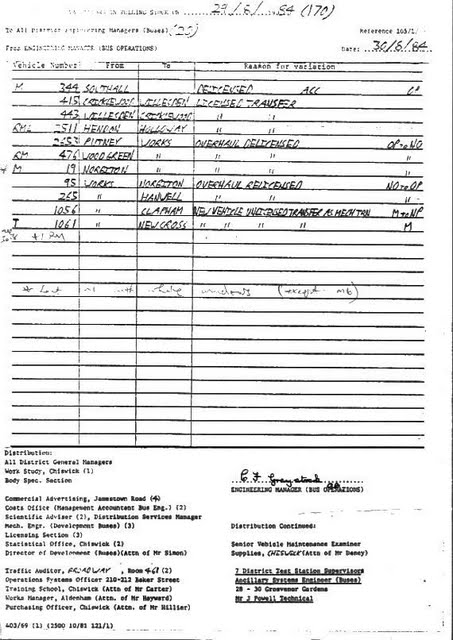 ROLLING STOCK ON 29/6/84 (170)
To All District Engineering Managers (Buses) (20) Reference 103/1/
From ENGINEERING MANAGER (BUS OPERATIONS) Date: 30/6/84
Vehicle Number From To Reason for variation
M 344 SOUTHALL DELICENSED ACC OP
415 CRICKLEWOOD WILLESDEN LICENSED TRANSFER
443 WILLESDEN CRICKLEWOOD " "
RML 2511 HENDON HOLLOWAY " "
2653 PUTNEY WORKS OVERHAUL DELICENSED OP to NO
RM 476 WOOD GREEN " " " "
M 19 NORBITON " " " "
95 WORKS NORBITON OVERHAUL RELICENSED NO to OP
265 " HANWELL " " "
1056 " CLAPHAM NEW VEHICLE UNLICENSED TRANSFER AS MECH TRN M to NP
T 1061 " NEW CROSS " " " " M
windows (except M6)
Distribution:
All District General Managers
Work Study, Chiswick (1)
Body Spec. Section
ENGINEERING MANAGER (BUS OPERATIONS)
Commercial Advertising, Jamestown Road (4)
Costs Office (Management Accountant Bus Eng.) (2)
Scientific Adviser (2), Distribution Services Manager
Mech. Engr. (Development Buses) (3)
Licensing Section (3)
Statistical Office, Chiswick (2)
Director of Development (Buses)(Attn of Mr Simon)
Distribution Continued:
Senior Vehicle Maintenance Examiner
Supplies, CHISWICK (Attn of Mr Daney)
Traffic Auditor, BROADWAY, Room 461 (2)
Operations Systems Officer 210-212 Baker Street
Training School, Chiswick (Attn of Mr Carter)
Works Manager, Aldenham (Attn. of Mr Hayward)
Purchasing Officer, Chiswick (Attn. of Mr Hillier)
7 District Test Station Supervisors
Ancillary Systems Engineer (Buses)
28 - 30 Grosvenor Gardens
Mr J Powell Technical
403/69 (1) (2500 10/82 121/1)